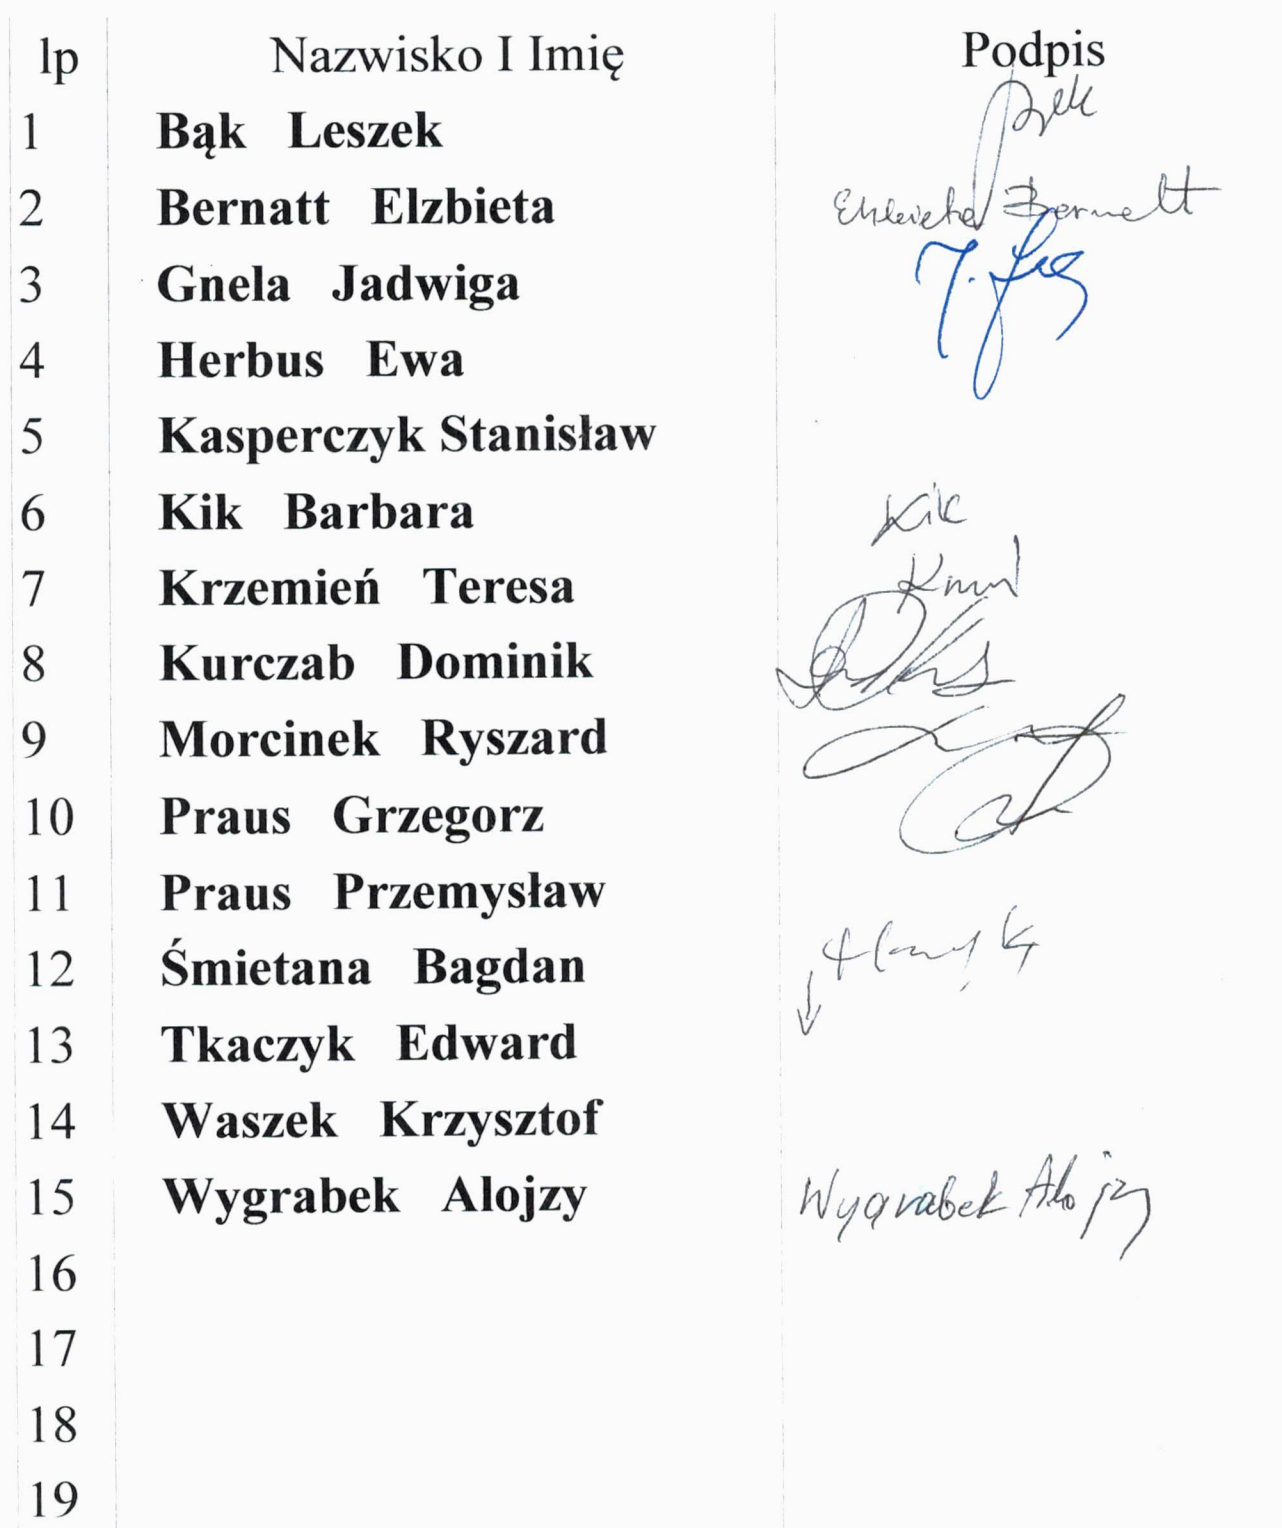 lp Nazwisko I Imię Podpis
1 Bąk Leszek
2 Bernatt Elzbieta Elżbieta Bernatt
3 Gnela Jadwiga
4 Herbus Ewa
5 Kasperczyk Stanisław
6 Kik Barbara Kik
7 Krzemień Teresa
8 Kurczab Dominik
9 Morcinek Ryszard
10 Praus Grzegorz
11 Praus Przemysław
12 Śmietana Bagdan
13 Tkaczyk Edward
14 Waszek Krzysztof
15 Wygrabek Alojzy Wygrabek Alojzy
16
17
18
19